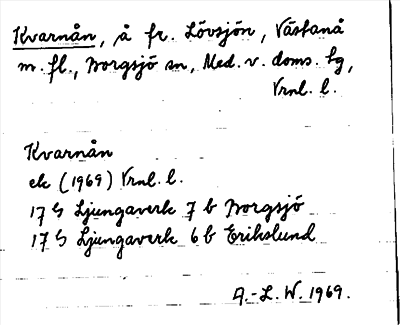 Kvarnån, å fr. Lövsjön, Västanå
m. fl., Borgsjö sn, Med. v. doms. tg,
Vrnl. l.
Kvarnån
ek (1969) Vrnl. l.
17 G Ljungaverk 7 b Borgsjö
17 G Ljungaverk 6 b Erikslund
A.-L. W. 1969.